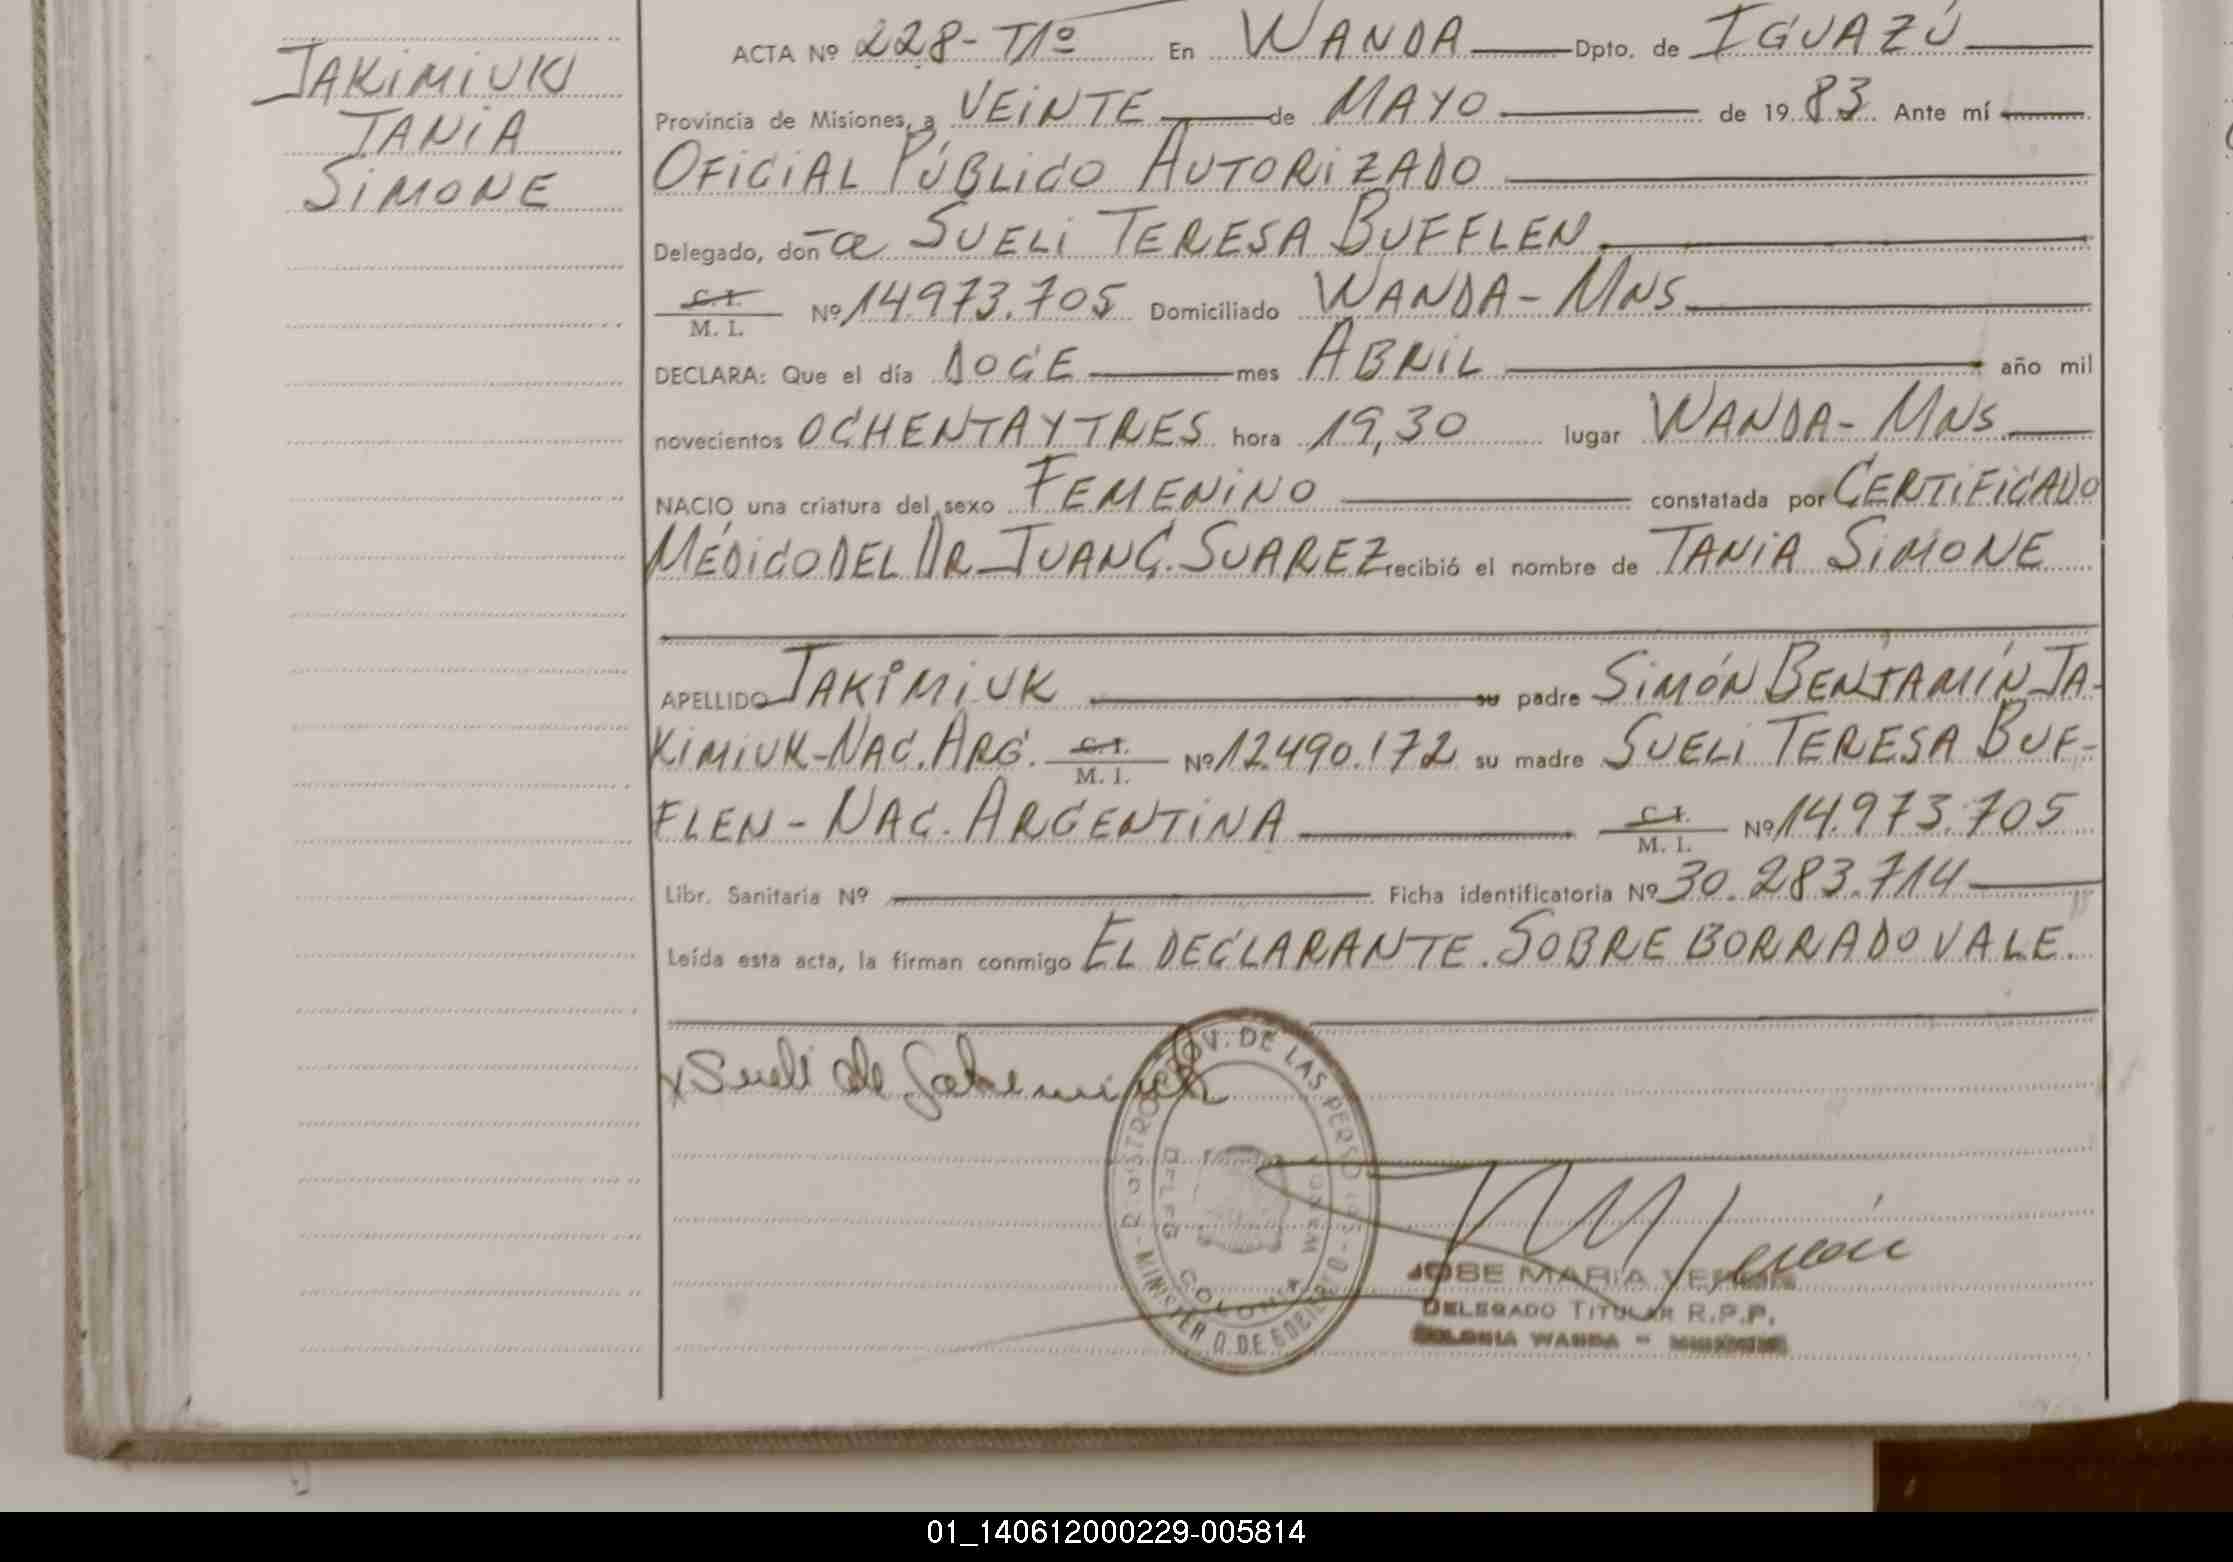 JAKIMIUK
TANIA
SIMONE
ACTA Nº 228-T1º En WANDA Dpto. de IGUAZÚ
Provincia de Misiones, a VEINTE de MAYO de 1983 Ante mí
OFICIAL PÚBLICO AUTORIZADO
Delegado, doña SUELI TERESA BUFFLEN
C.I. M. I. Nº 14.973.705 Domiciliado WANDA-MNS
DECLARA: Que el día DOCE mes ABRIL año mil
novecientos OCHENTA Y TRES hora 19,30 lugar WANDA-MNS
NACIO una criatura del sexo FEMENINO constatada por CERTIFICADO
MÉDICO DEL DR JUAN C. SUAREZ recibió el nombre de TANIA SIMONE
APELLIDO JAKIMIUK su padre SIMÓN BENJAMÍN JA-
KIMIUK-NAC. ARG. C.I. M. I. Nº 12.490.172 su madre SUELI TERESA BUF-
FLEN-NAC. ARGENTINA C.I. M. I. Nº 14.973.705
Libr. Sanitaria Nº Ficha identificatoria Nº 30.283.714
Leída esta acta, la firman conmigo EL DECLARANTE. SOBRE BORRADO VALE.
x Sueli de Jakemiuk
PROV. DE LAS PERSO
DELEG
COLONIA
WANDA
MINISTERIO DE GOBIERNO
JOSE MARIA
DELEGADO TITULAR R.P.P.
COLONIA WANDA - MISIONES
01_140612000229-005814